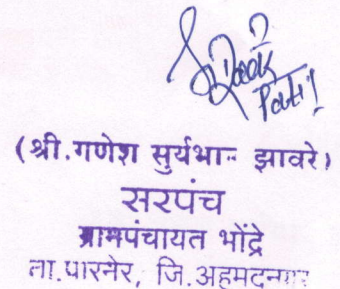 Patil
(श्री.गणेश सुर्यभान झावरे)
सरपंच
ग्रामपंचायत भोंद्रे
ता.पारनेर, जि.अहमदनगर